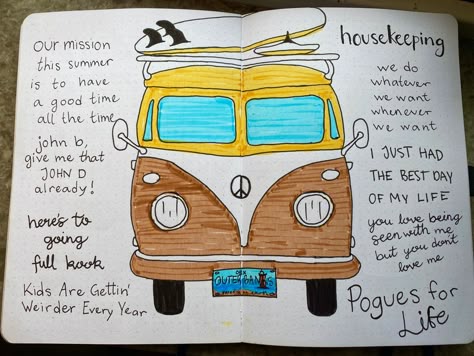 OUR MISSION
THIS SUMMER
IS TO HAVE
A GOOD TIME
ALL THE TIME
john b,
give me that
JOHN D
already!
here's to
going
full kook
Kids Are Gettin'
Weirder Every Year
OBX
OUTER BANKS
housekeeping
we do
whatever
we want
whenever
we want
I JUST HAD
THE BEST DAY
OF MY LIFE
you love being
seen with me
but you don't
love me
Pogues for
Life